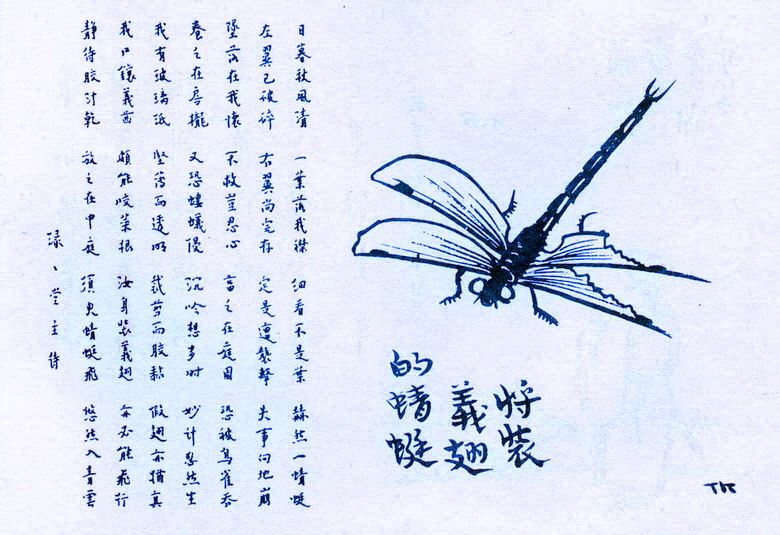 將裝
義翅
的蜻蜓
TK
日暮秋風清 一葉落我襟 細看不是葉 赫然一蜻蜓
左翼已破碎 右翼尚完存 定是遭襲擊 失事向地崩
墜落在我懷 不救豈忍心 畜之在庭園 恐被鳥雀吞
養之在房櫳 又恐螻蟻侵 沉吟想多時 妙計忽然生
我有玻璃紙 堅薄而透明 裁剪而膠黏 假翅亦猶真
我口鑲義齒 頗能咬菜根 汝身裝義翅 亦必能飛行
靜待膠汁乾 放之在中庭 須臾蜻蜓飛 悠然入青雲
緣〻堂主詩